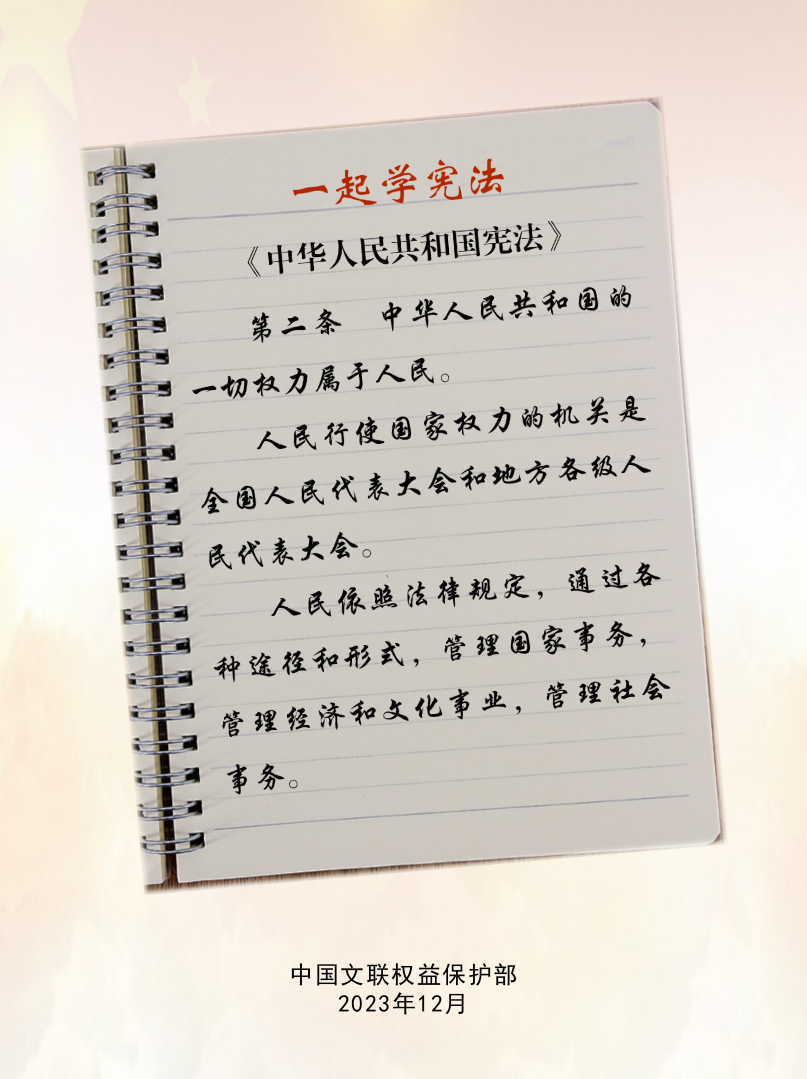 一起学宪法
《中华人民共和国宪法》
第二条　中华人民共和国的
一切权力属于人民。
人民行使国家权力的机关是
全国人民代表大会和地方各级人
民代表大会。
人民依照法律规定，通过各
种途径和形式，管理国家事务，
管理经济和文化事业，管理社会
事务。
中国文联权益保护部
2023年12月